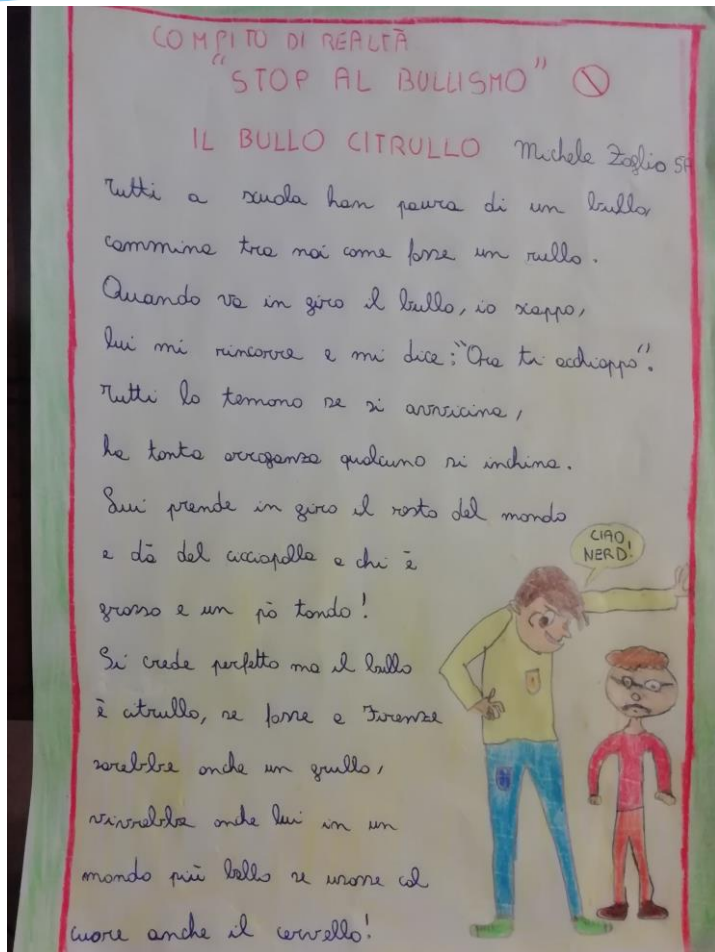 COMPITO DI REALTÀ
"STOP AL BULLISMO"
IL BULLO CITRULLO Michele Zoglio 5A
Tutti a scuola han paura di un bullo,
cammina tra noi come fosse un rullo.
Quando va in giro il bullo, io scappo,
lui mi rincorre e mi dice: "Ora ti acchiappo".
Tutti lo temono se si avvicina,
ha tanta arroganza qualcuno si inchina.
Lui prende in giro il resto del mondo
e dà del cicciapolla a chi è
grosso e un pò tondo!
Si crede perfetto ma il bullo
è citrullo, se fosse a Firenze
sarebbe anche un grullo,
vivrebbe anche lui in un
mondo più bello se usasse col
cuore anche il cervello!
CIAO,
NERD!